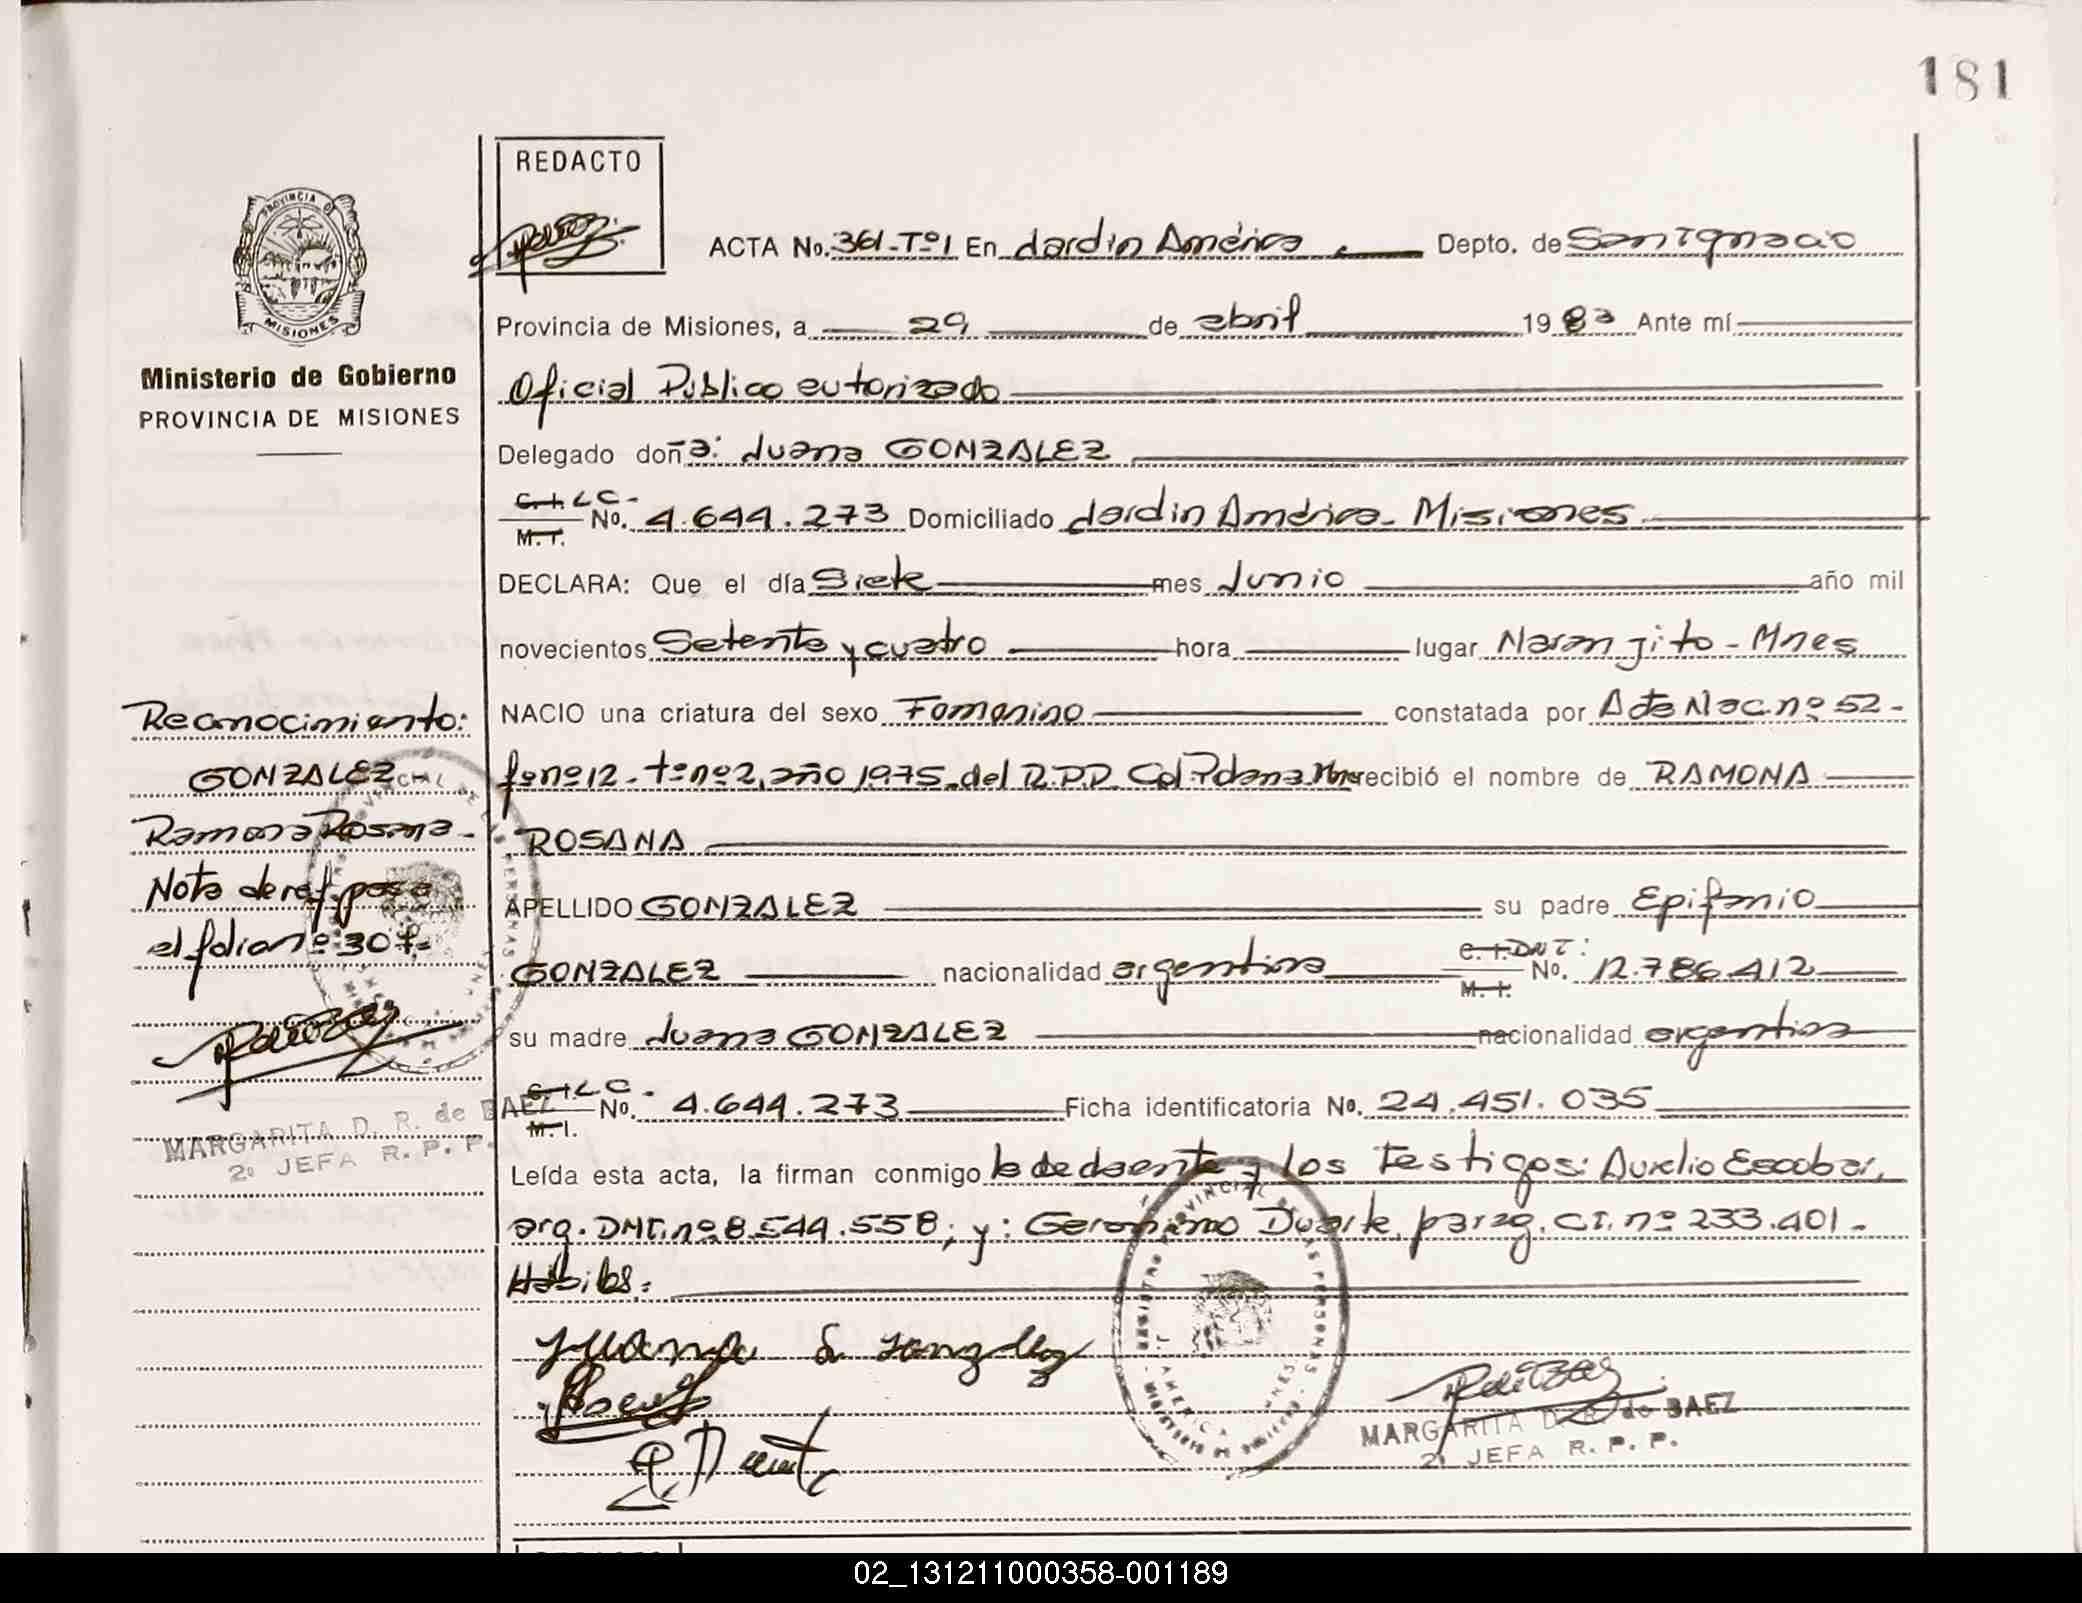 181
REDACTO
PROVINCIA D
MISIONES
Ministerio de Gobierno
PROVINCIA DE MISIONES
ACTA No. 361-Tº1 En Jardin América Depto. de San Ignacio
Provincia de Misiones, a 29 de abril 1983 Ante mí
Oficial Público autorizado
Delegado doña: Juana GONZALEZ
C.I. LC- M.I. No. 4.644.273 Domiciliado Jardin América - Misiones
DECLARA: Que el día Siete mes Junio año mil
novecientos Setenta y cuatro hora lugar Naranjito - Mnes
NACIO una criatura del sexo Femenino constatada por Acta Nac. nº 52 -
fº nº 12 - tº nº 2, año 1975, del R.P.P. Col. recibió el nombre de RAMONA
ROSANA
APELLIDO GONZALEZ su padre Epifanio
GONZALEZ nacionalidad argentina C.I. DNI: M.I. No. 12.786.412
su madre Juana GONZALEZ nacionalidad argentina
C.I. LC - M.I. No. 4.644.273 Ficha identificatoria No. 24.451.035
Leída esta acta, la firman conmigo la declarante y los testigos: Aurelio Escobar,
arg. DNI. nº 8.544.558; y: Geronimo Duarte, parag. CI. nº 233.401 -
Hábiles:
Juana S. Gonzalez
MARGARITA D. R. de BAEZ
2º JEFA R. P. P.
Reconocimiento:
GONZALEZ
Ramona Rosana -
Nota de ref. pasa
el folio nº 307 -
MARGARITA D. R. de BAEZ
2º JEFA R. P. P.
02_131211000358-001189